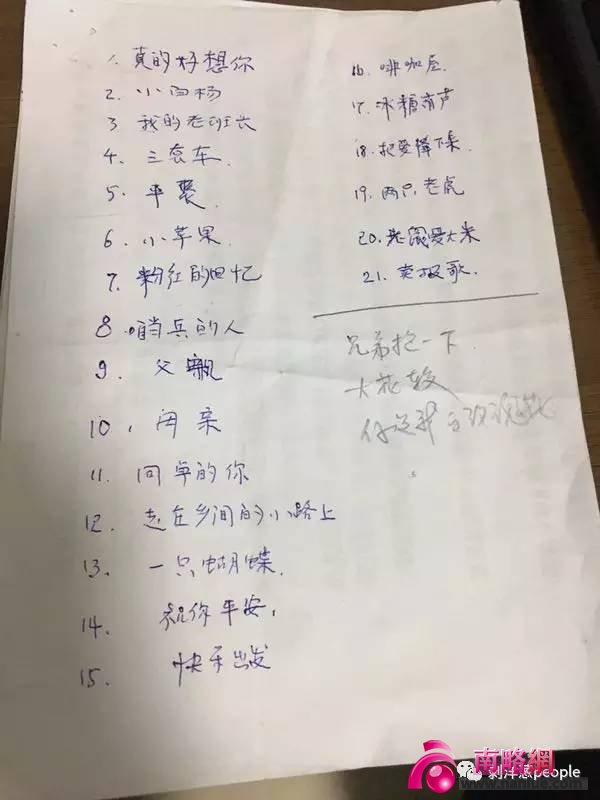 1. 真的好想你
2. 小白杨
3 我的老班长
4. 三套车
5. 平
6. 小苹果
7. 粉红的回忆
8. 哨兵的人
9. 父
10. 母亲
11. 同卓的你
12. 走在乡间的小路上
13. 一只蝴蝶
14. 祝你平安
15. 快乐出发
16. 啡咖屋
17. 冰糖葫芦
18. 把爱撵下来
19. 两只老虎
20. 老鼠爱大米
21. 卖报歌
兄弟抱一下
大花轿
你送我
南略網
剥洋葱people